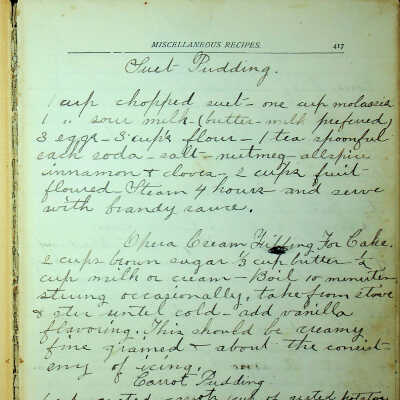 MISCELLANEOUS RECIPES. 417
Suet Pudding.
1 cup chopped suet - one cup molasses
1 " sour milk - (butter-milk preferred)
3 eggs - 3 cups flour - 1 tea spoonful
each soda - salt - nutmeg - allspice
cinnamon & cloves - 2 cups fruit
floured. Steam 4 hours and serve
with brandy sauce.
Opera Cream Filling For Cake.
2 cups brown sugar ⅓ cup butter - ½
cup milk or cream - Boil 10 minutes,
stiring occasionally, take from stove
& stir until cold - add vanilla
flavoring. This should be creamy
fine grained & about the consist-
ency of icing.
Carrot Pudding
1 cup grated carrots 1 cup of grated potatoes